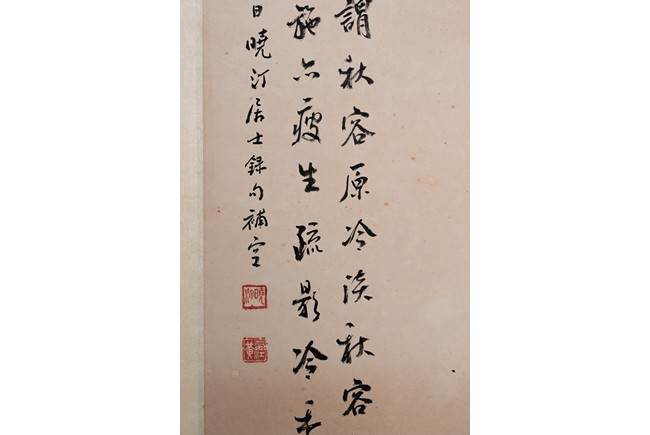 謂秋容原冷淡秋容
施亦瘦生疏影冷
日曉汀居士錄句補空